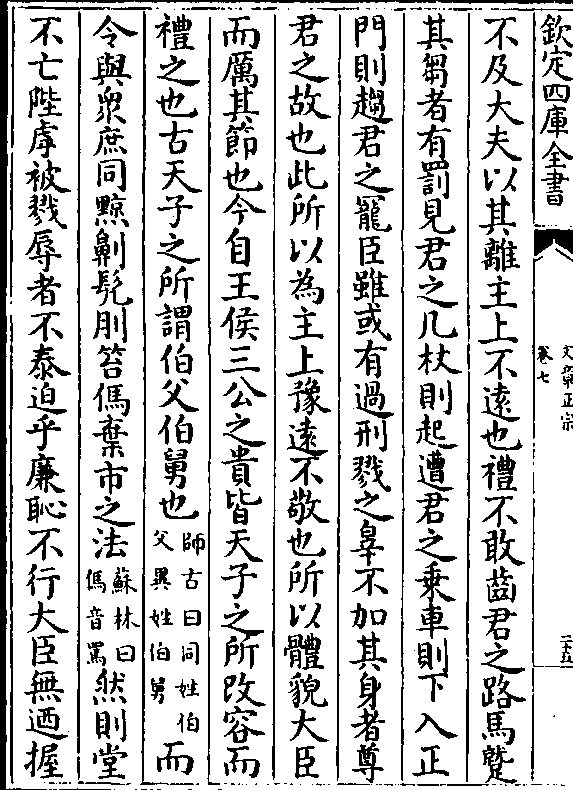 欽定四庫全書
文章正宗
卷七
二十五
不及大夫以其離主上不遠也禮不敢齒君之路馬蹵
其芻者有罰見君之几杖則起遭君之乗車則下入正
門則趨君之寵臣雖或有過刑戮之辠不加其身者尊
君之故也此所以為主上豫遠不敬也所以體貌大臣
而厲其節也今自王侯三公之貴皆天子之所改容而
禮之也古天子之所謂伯父伯舅也師古曰同姓伯父異姓伯舅而
令與衆庶同黥劓髠刖笞傌棄市之法蘇林曰傌音罵然則堂
不亡陛虖被戮辱者不泰迫乎廉恥不行大臣無迺握